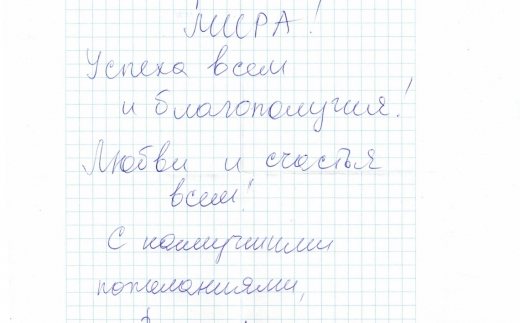 МИРА!
Успеха всем
и благополучия!
Любви и счастья
всем!
С наилучшими
пожеланиями,